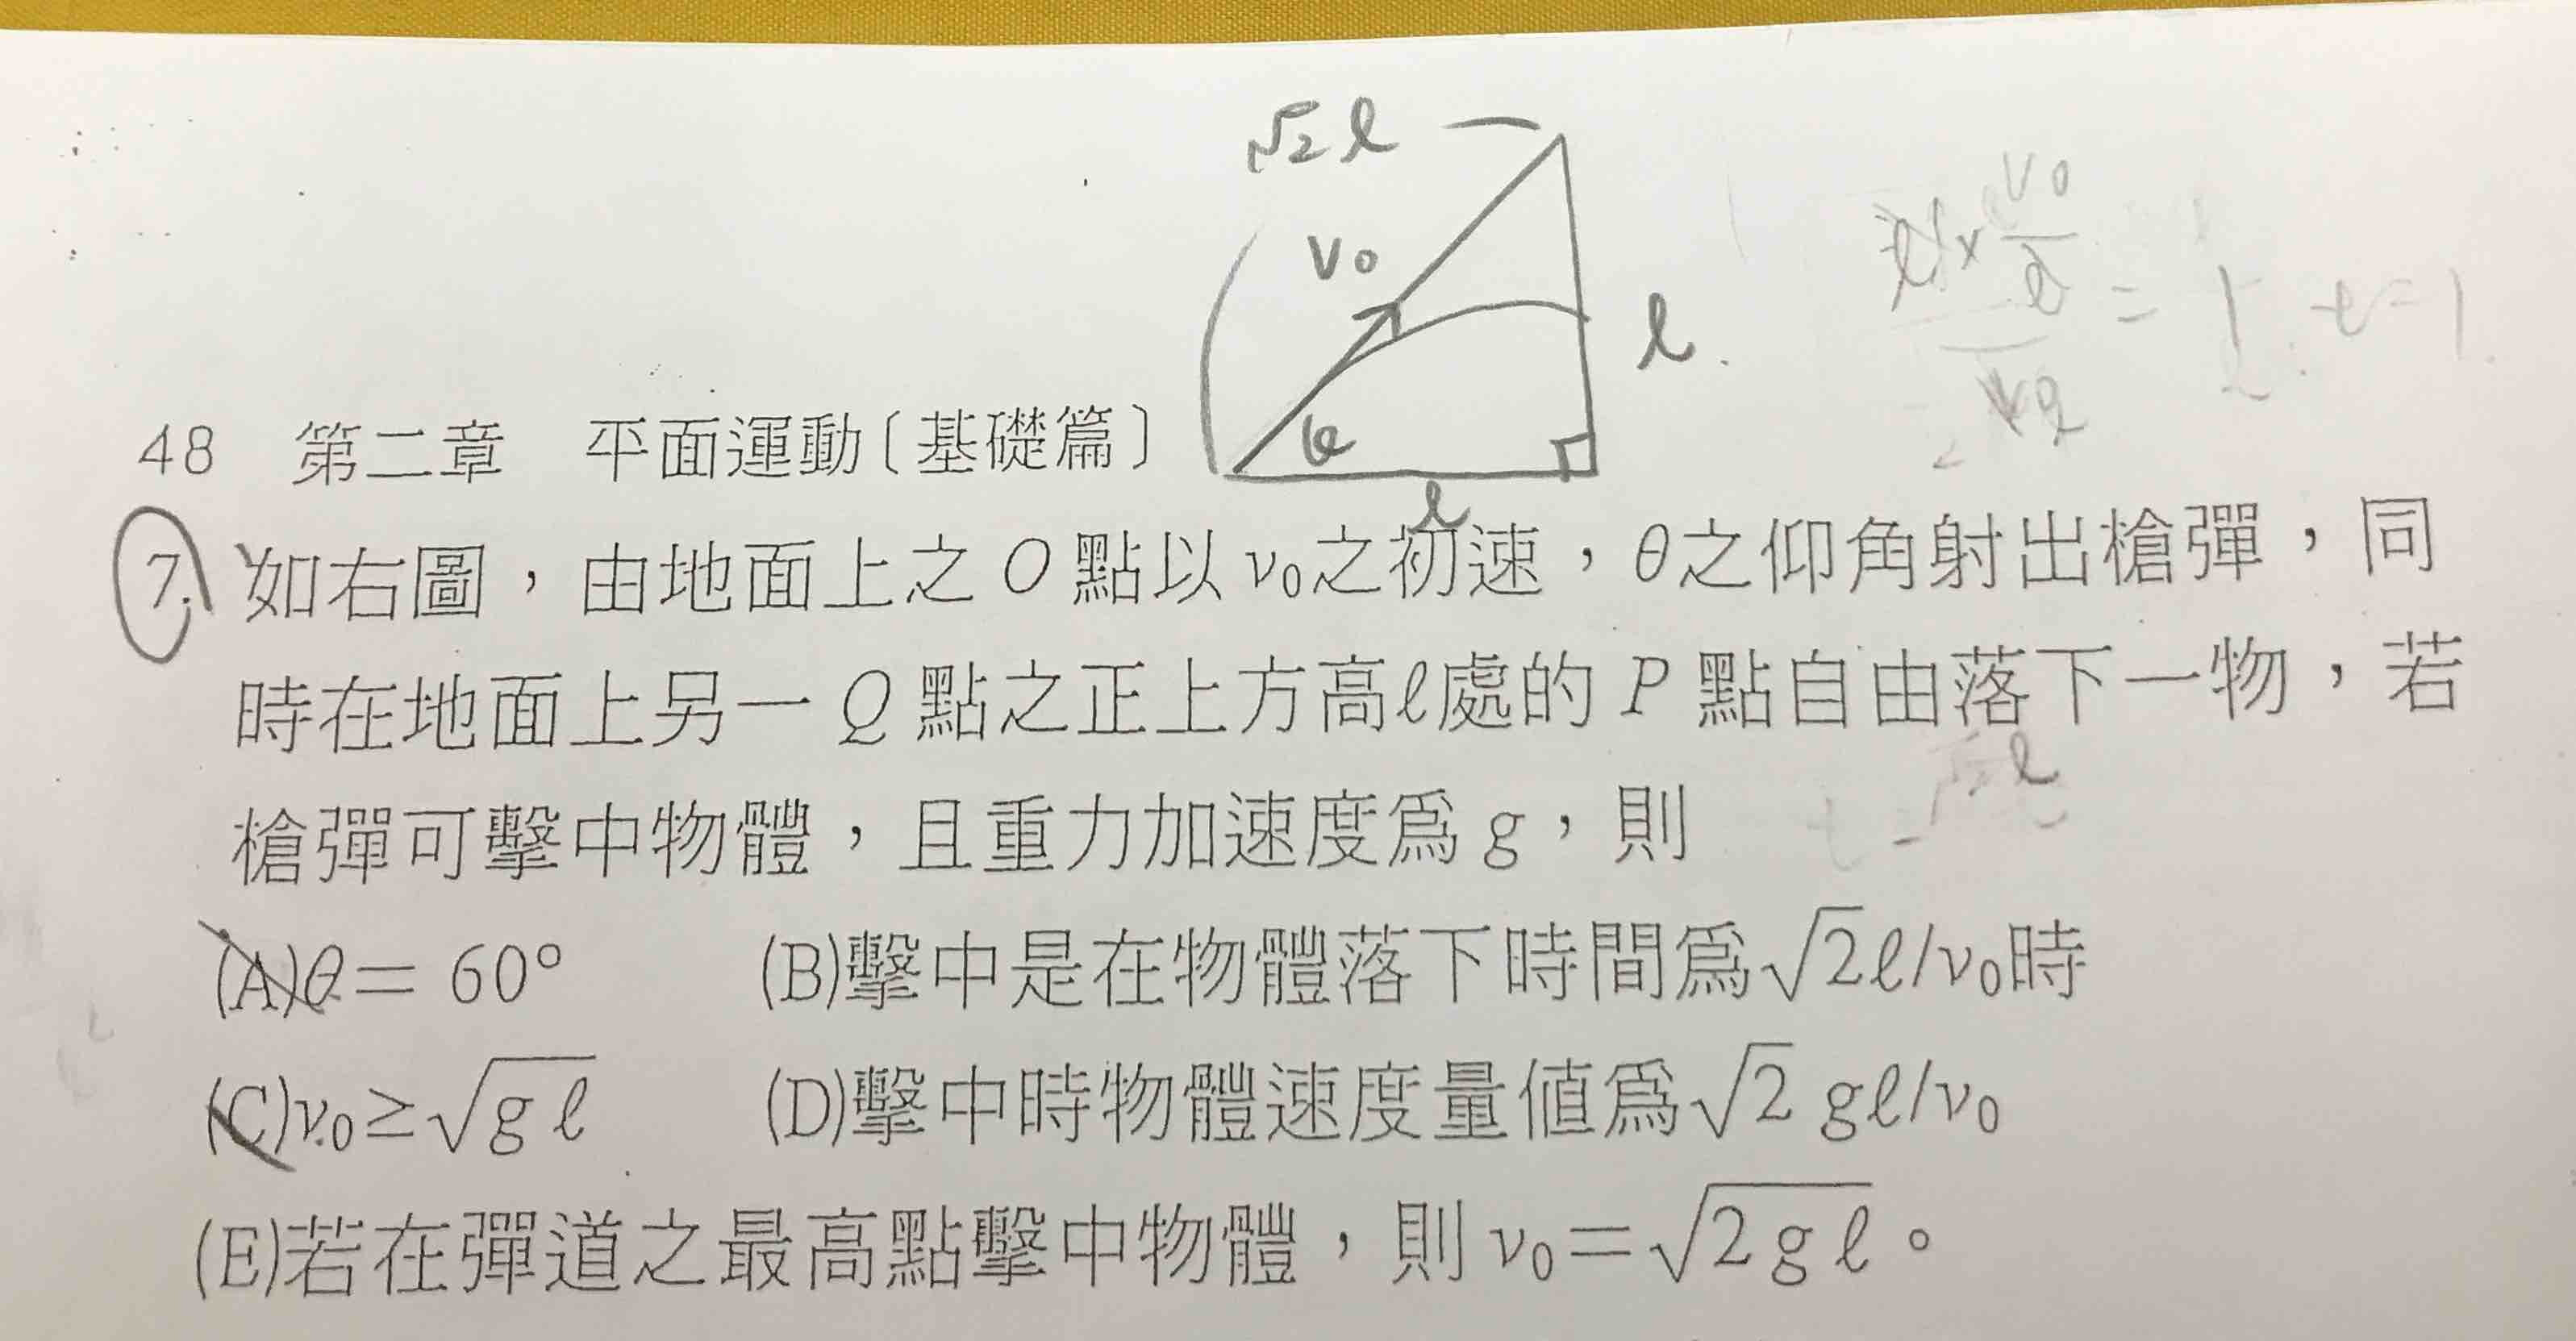 √2 ℓ
v0
ℓ
θ
ℓ
48 第二章 平面運動〔基礎篇〕
7. 如右圖，由地面上之 O 點以 v₀之初速，θ之仰角射出槍彈，同
時在地面上另一 Q 點之正上方高ℓ處的 P 點自由落下一物，若
槍彈可擊中物體，且重力加速度為 g，則
(A)θ＝ 60° (B)擊中是在物體落下時間為√2ℓ/v₀時
(C)v₀≥√gℓ (D)擊中時物體速度量值為√2 gℓ/v₀
(E)若在彈道之最高點擊中物體，則 v₀＝√2gℓ。